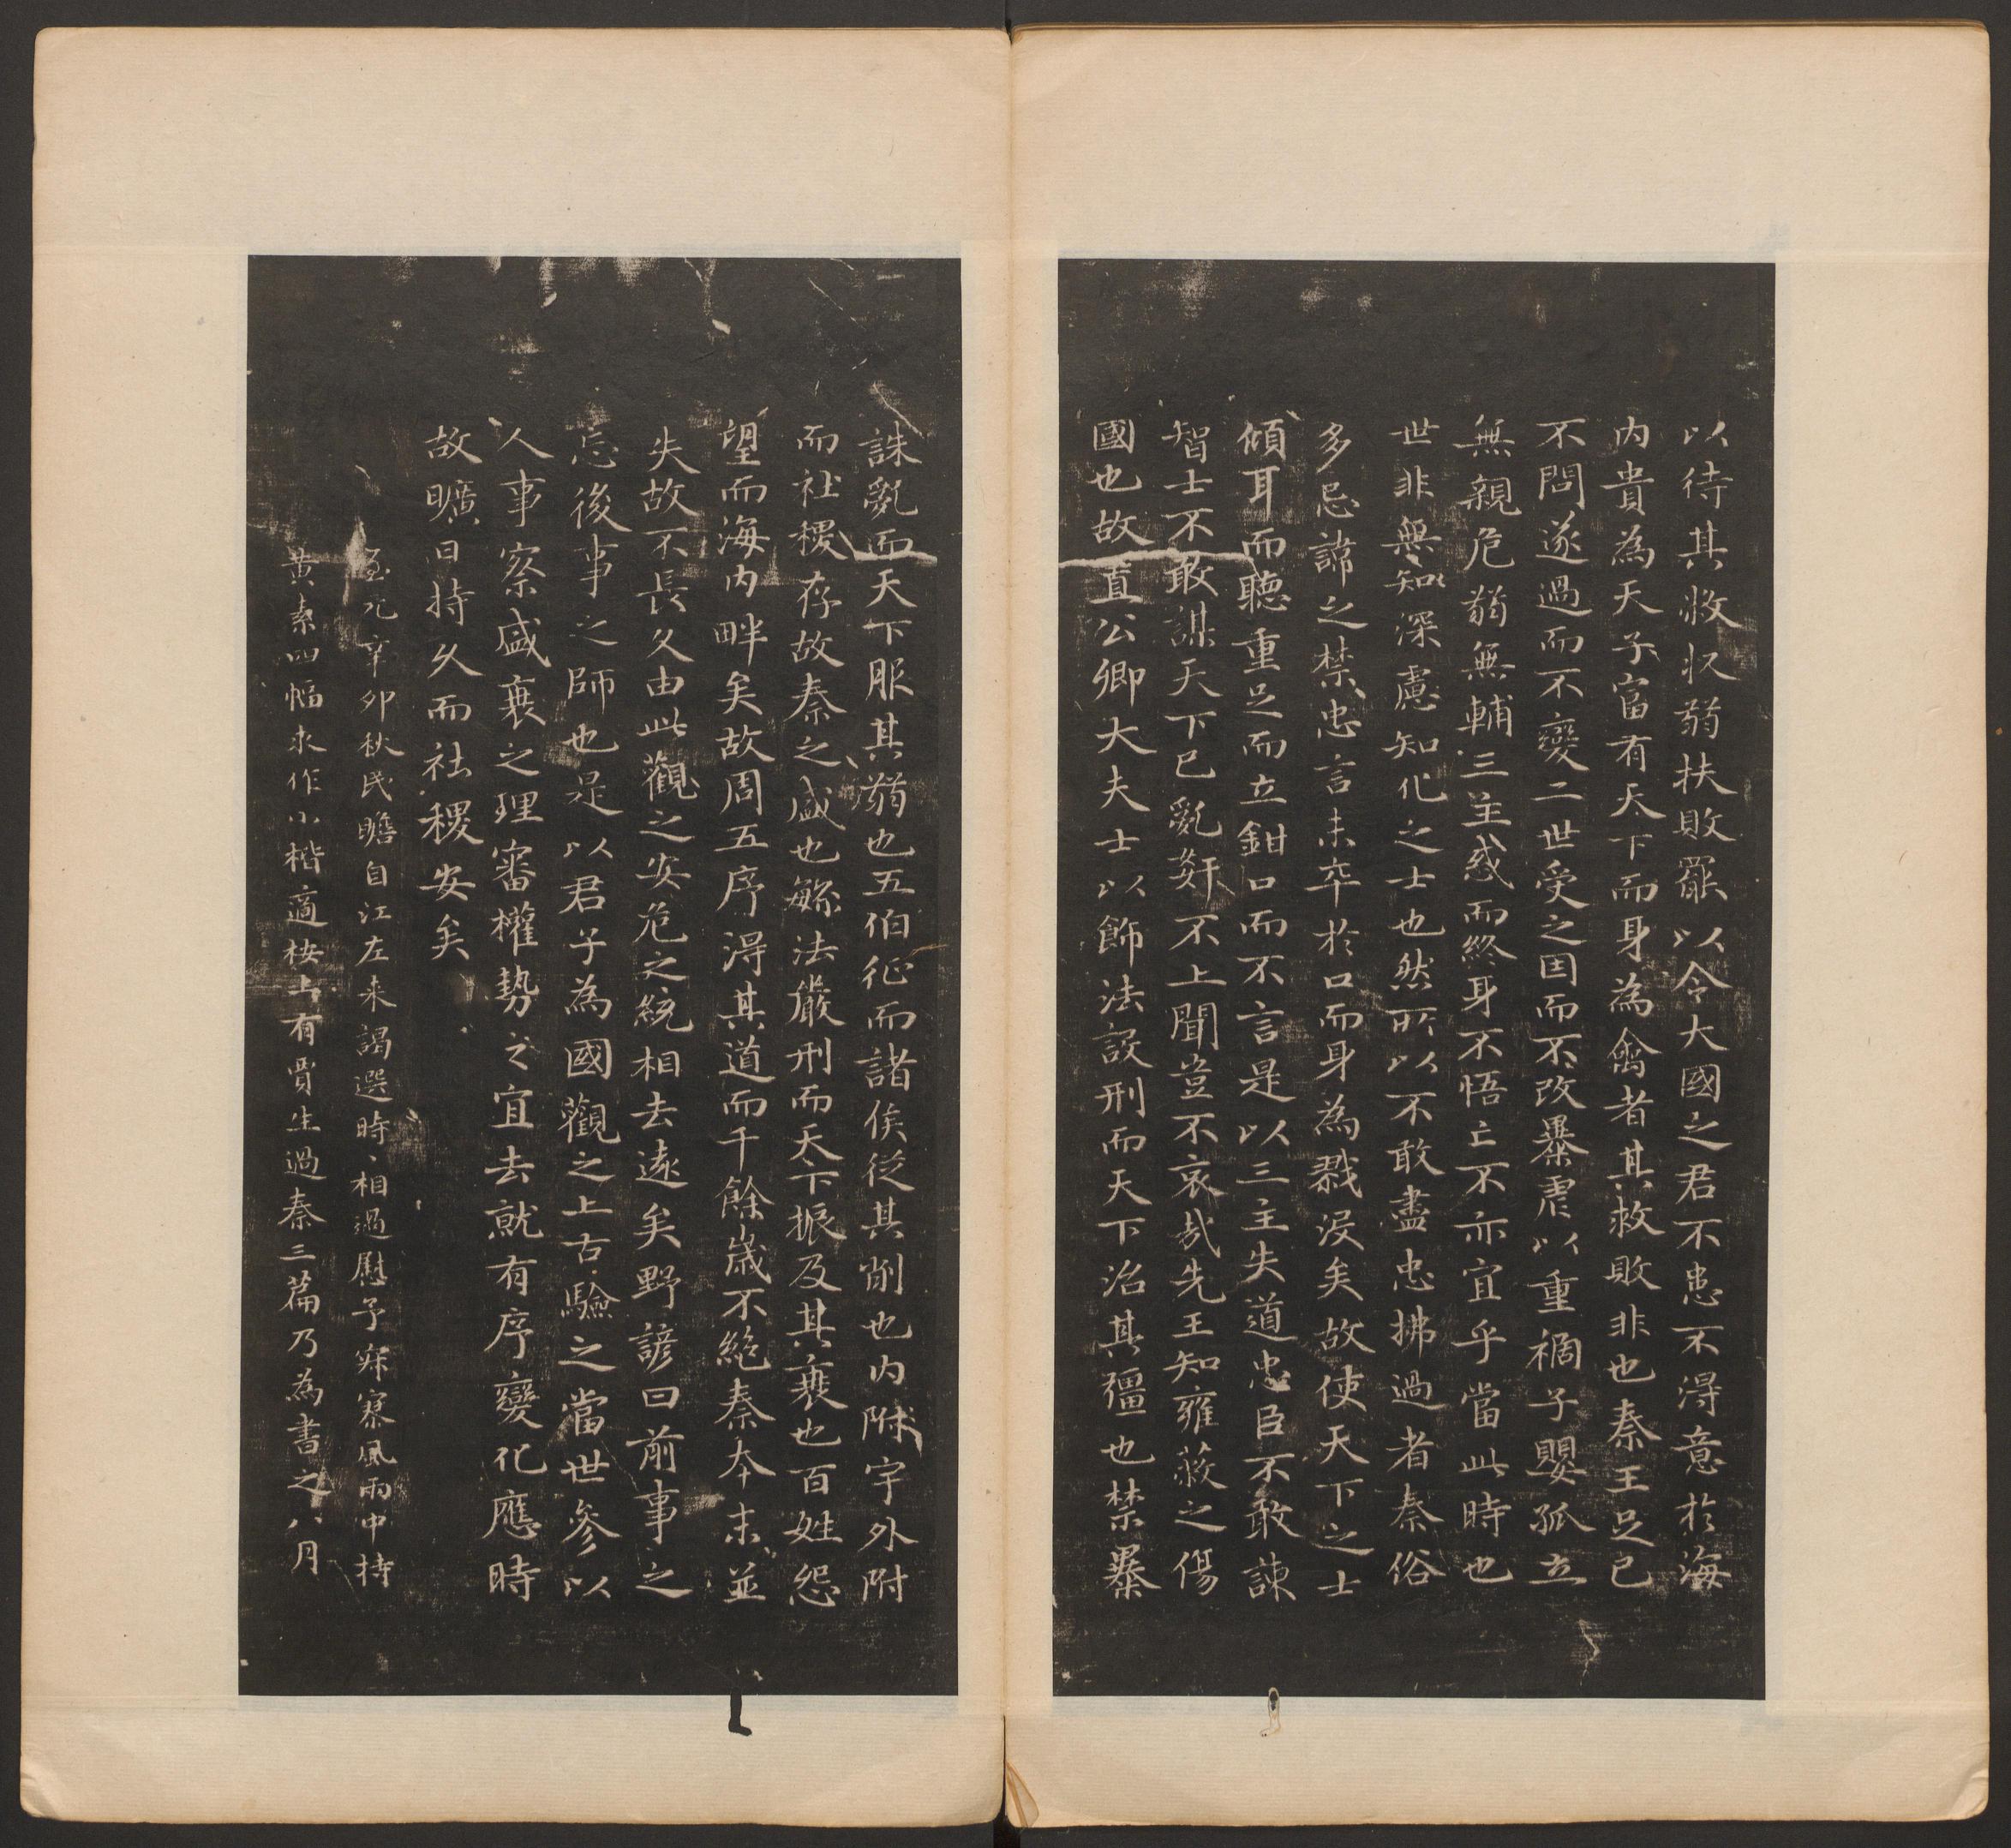 以待其救收弱扶敗罷以令大國之君不患不得意於海
内貴為天子富有天下而身為禽者其救敗非也秦王足已
不問遂過而不變二世受之因而不改暴虐以重禍子嬰孤立
無親危弱無輔三主惑而終身不悟亡不亦宜乎當此時也
世非無知深慮知化之士也然所以不敢盡忠拂過者秦俗
多忌諱之禁忠言未卒於口而身為戮没矣故使天下之士
傾耳而聽重足而立鉗口而不言是以三主失道忠臣不敢諫
智士不敢謀天下已亂姧不上聞豈不哀哉先王知雍蔽之傷
國也故置公卿大夫士以飾法設刑而天下治其彊也禁暴
誅亂而天下服其弱也五伯征而諸侯從其削也内附宇外附
而社稷存故秦之盛也繁法嚴刑而天下振及其衰也百姓怨
望而海内畔矣故周五序得其道而千餘歲不絶秦本末並
失故不長久由此觀之安危之統相去遠矣野諺曰前事之不
忘後事之師也是以君子為國觀之上古驗之當世參以
人事察盛衰之理審權勢之宜去就有序變化應時
故曠日持久而社稷安矣
至元辛卯秋民瞻自江左来謁選時、相過慰予寂寥風雨中持
黄素四幅求作小楷適桉上有賈生過秦三篇乃為書之八月